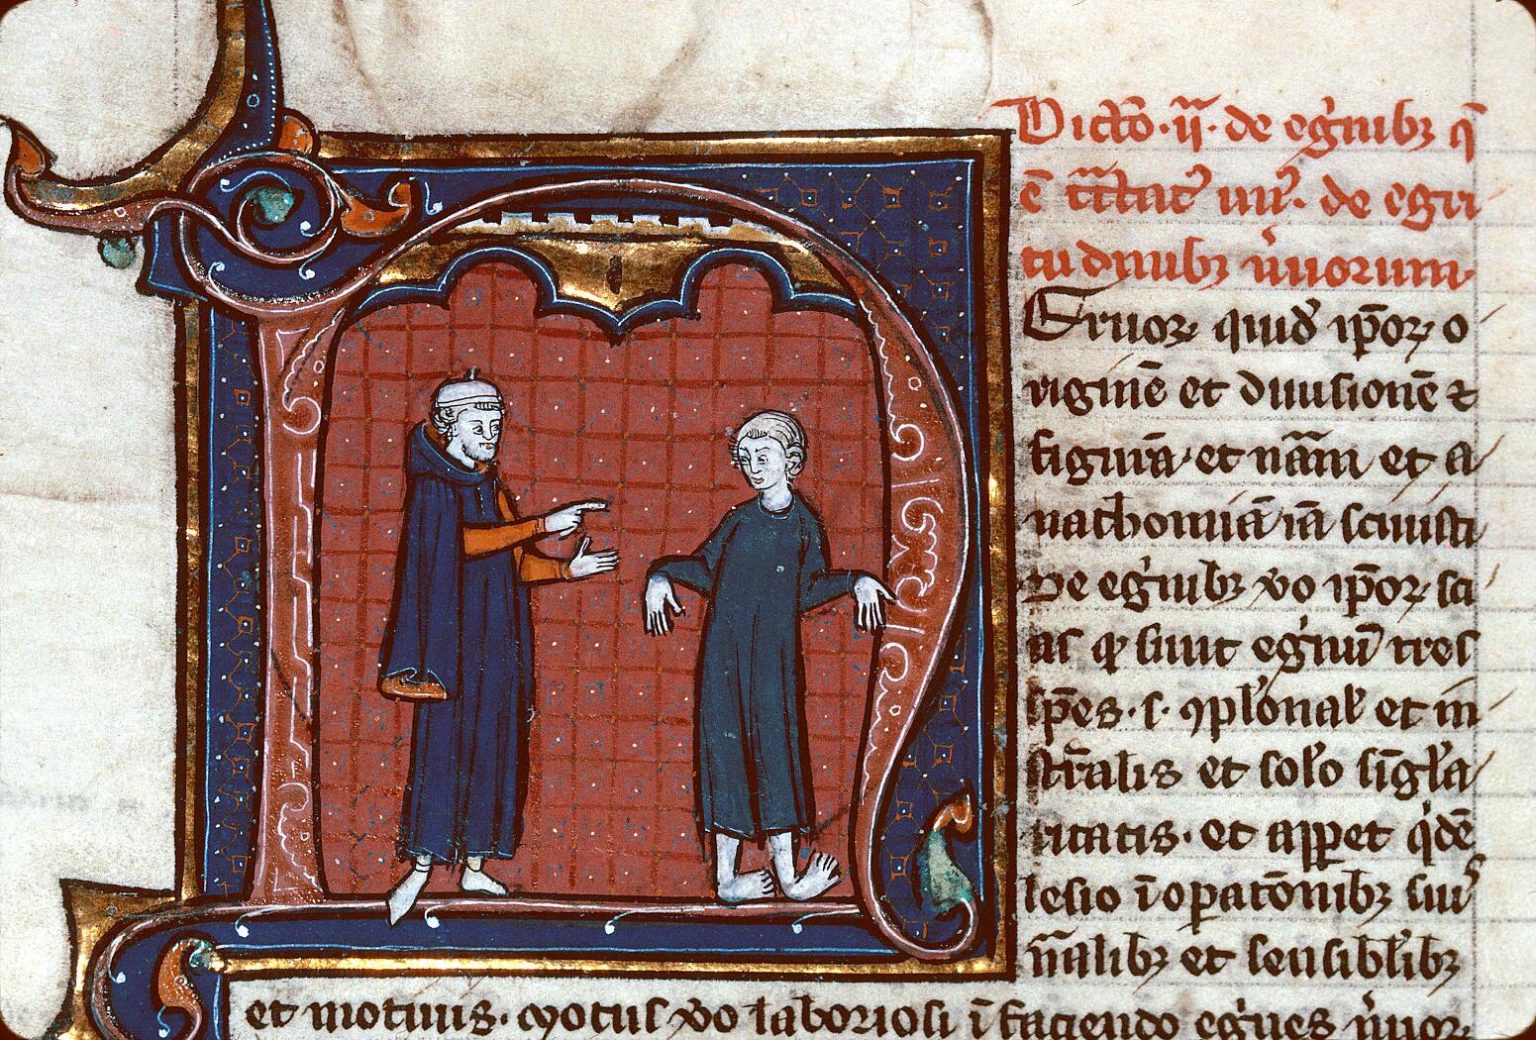 Dicto · ii · de egr̾nibꝫ q̄
ē tͣctatꝰ uni̾ · de egri
tudinibꝫ n̾uorum.
Eruoꝝ quid̾ ip̄oꝝ o
riginē et diuisionē ⁊
figurā · et nāꝫ et a
nathomiā iā sciuisti
De egr̾nibꝫ v̾o ip̄oꝝ sci
as qꝫ sunt egr̾inū tres
sp̄es · s · ꝯpl̾onal̾ et in
str̾alis et sol̾o singl̾a
ritatis · et apparet q̾dē
lesio ī oꝑatōnibꝫ sui̾
nālibꝫ et sensibl̾ibꝫ
et motiuis. Motus v̾o laboriosi ī faciendo egr̾ues n̾uoꝝ